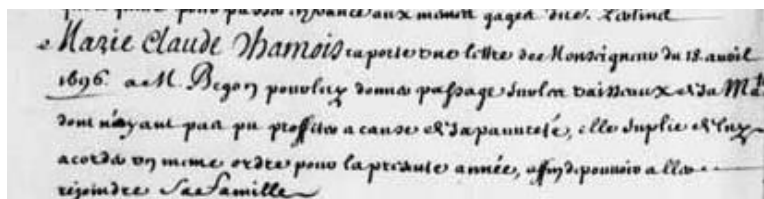 Marie Claude Chamois raporte une lettre de Monseigneur du 18. avril
1696. a M. Begon pour luy donner passage sur les vaisseaux de sa Ma.té
dont n'ayant pas pu proffiter a cause de sa pauvreté, elle suplie de luy
acorder un meme ordre pour la presente année, affin de pouvoir aller
rejoindre sa famille